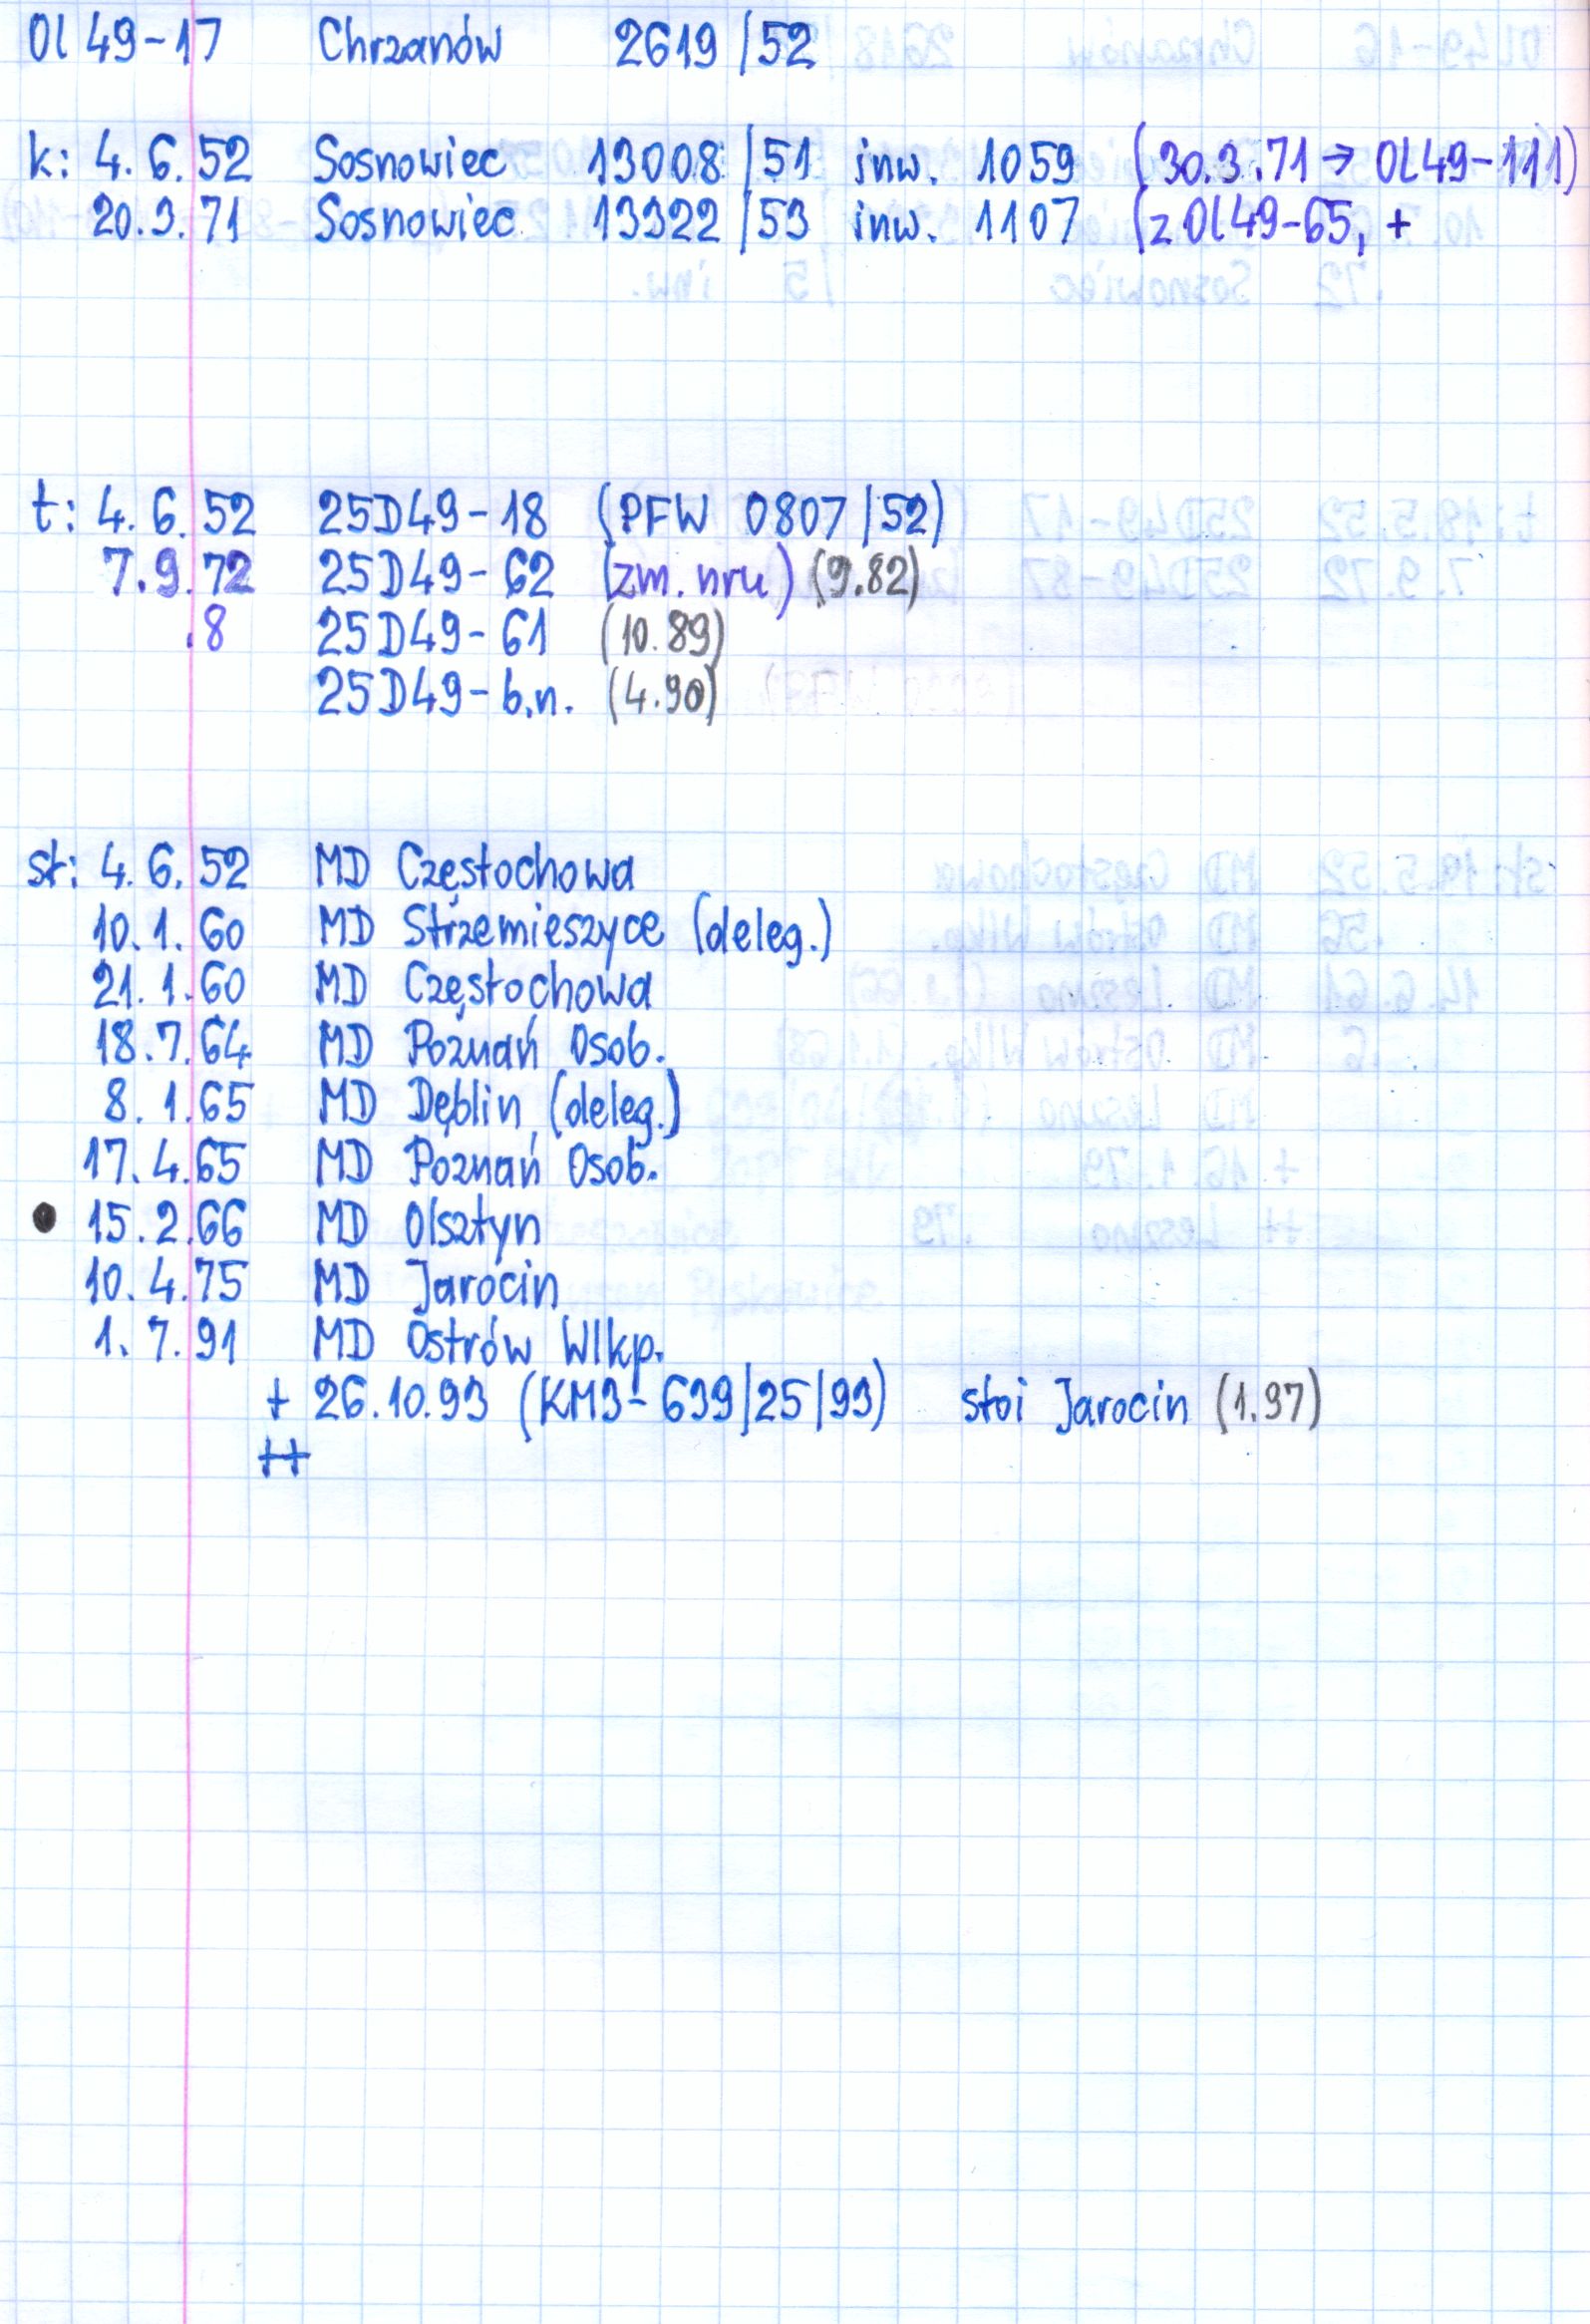 Ol49-17 Chrzanów 2619/52
k: 4.6.52 Sosnowiec 13008/51 inw. 1059 (30.3.71 → Ol49-111)
20.3.71 Sosnowiec 13322/53 inw. 1107 (z Ol49-65, +
t: 4.6.52 25D49-18 (PFW 0807/52)
7.9.72 25D49-62 (zm. nru) (9.82)
.8 25D49-61 (10.89)
25D49-b.n. (4.90)
st: 4.6.52 MD Częstochowa
10.1.60 MD Strzemieszyce (deleg.)
21.1.60 MD Częstochowa
18.7.64 MD Poznań Osob.
8.1.65 MD Dęblin (deleg.)
17.4.65 MD Poznań Osob.
● 15.2.66 MD Olsztyn
10.4.75 MD Jarocin
1.7.91 MD Ostrów Wlkp.
+ 26.10.93 (KM3-639/25/93) stoi Jarocin (1.97)
++